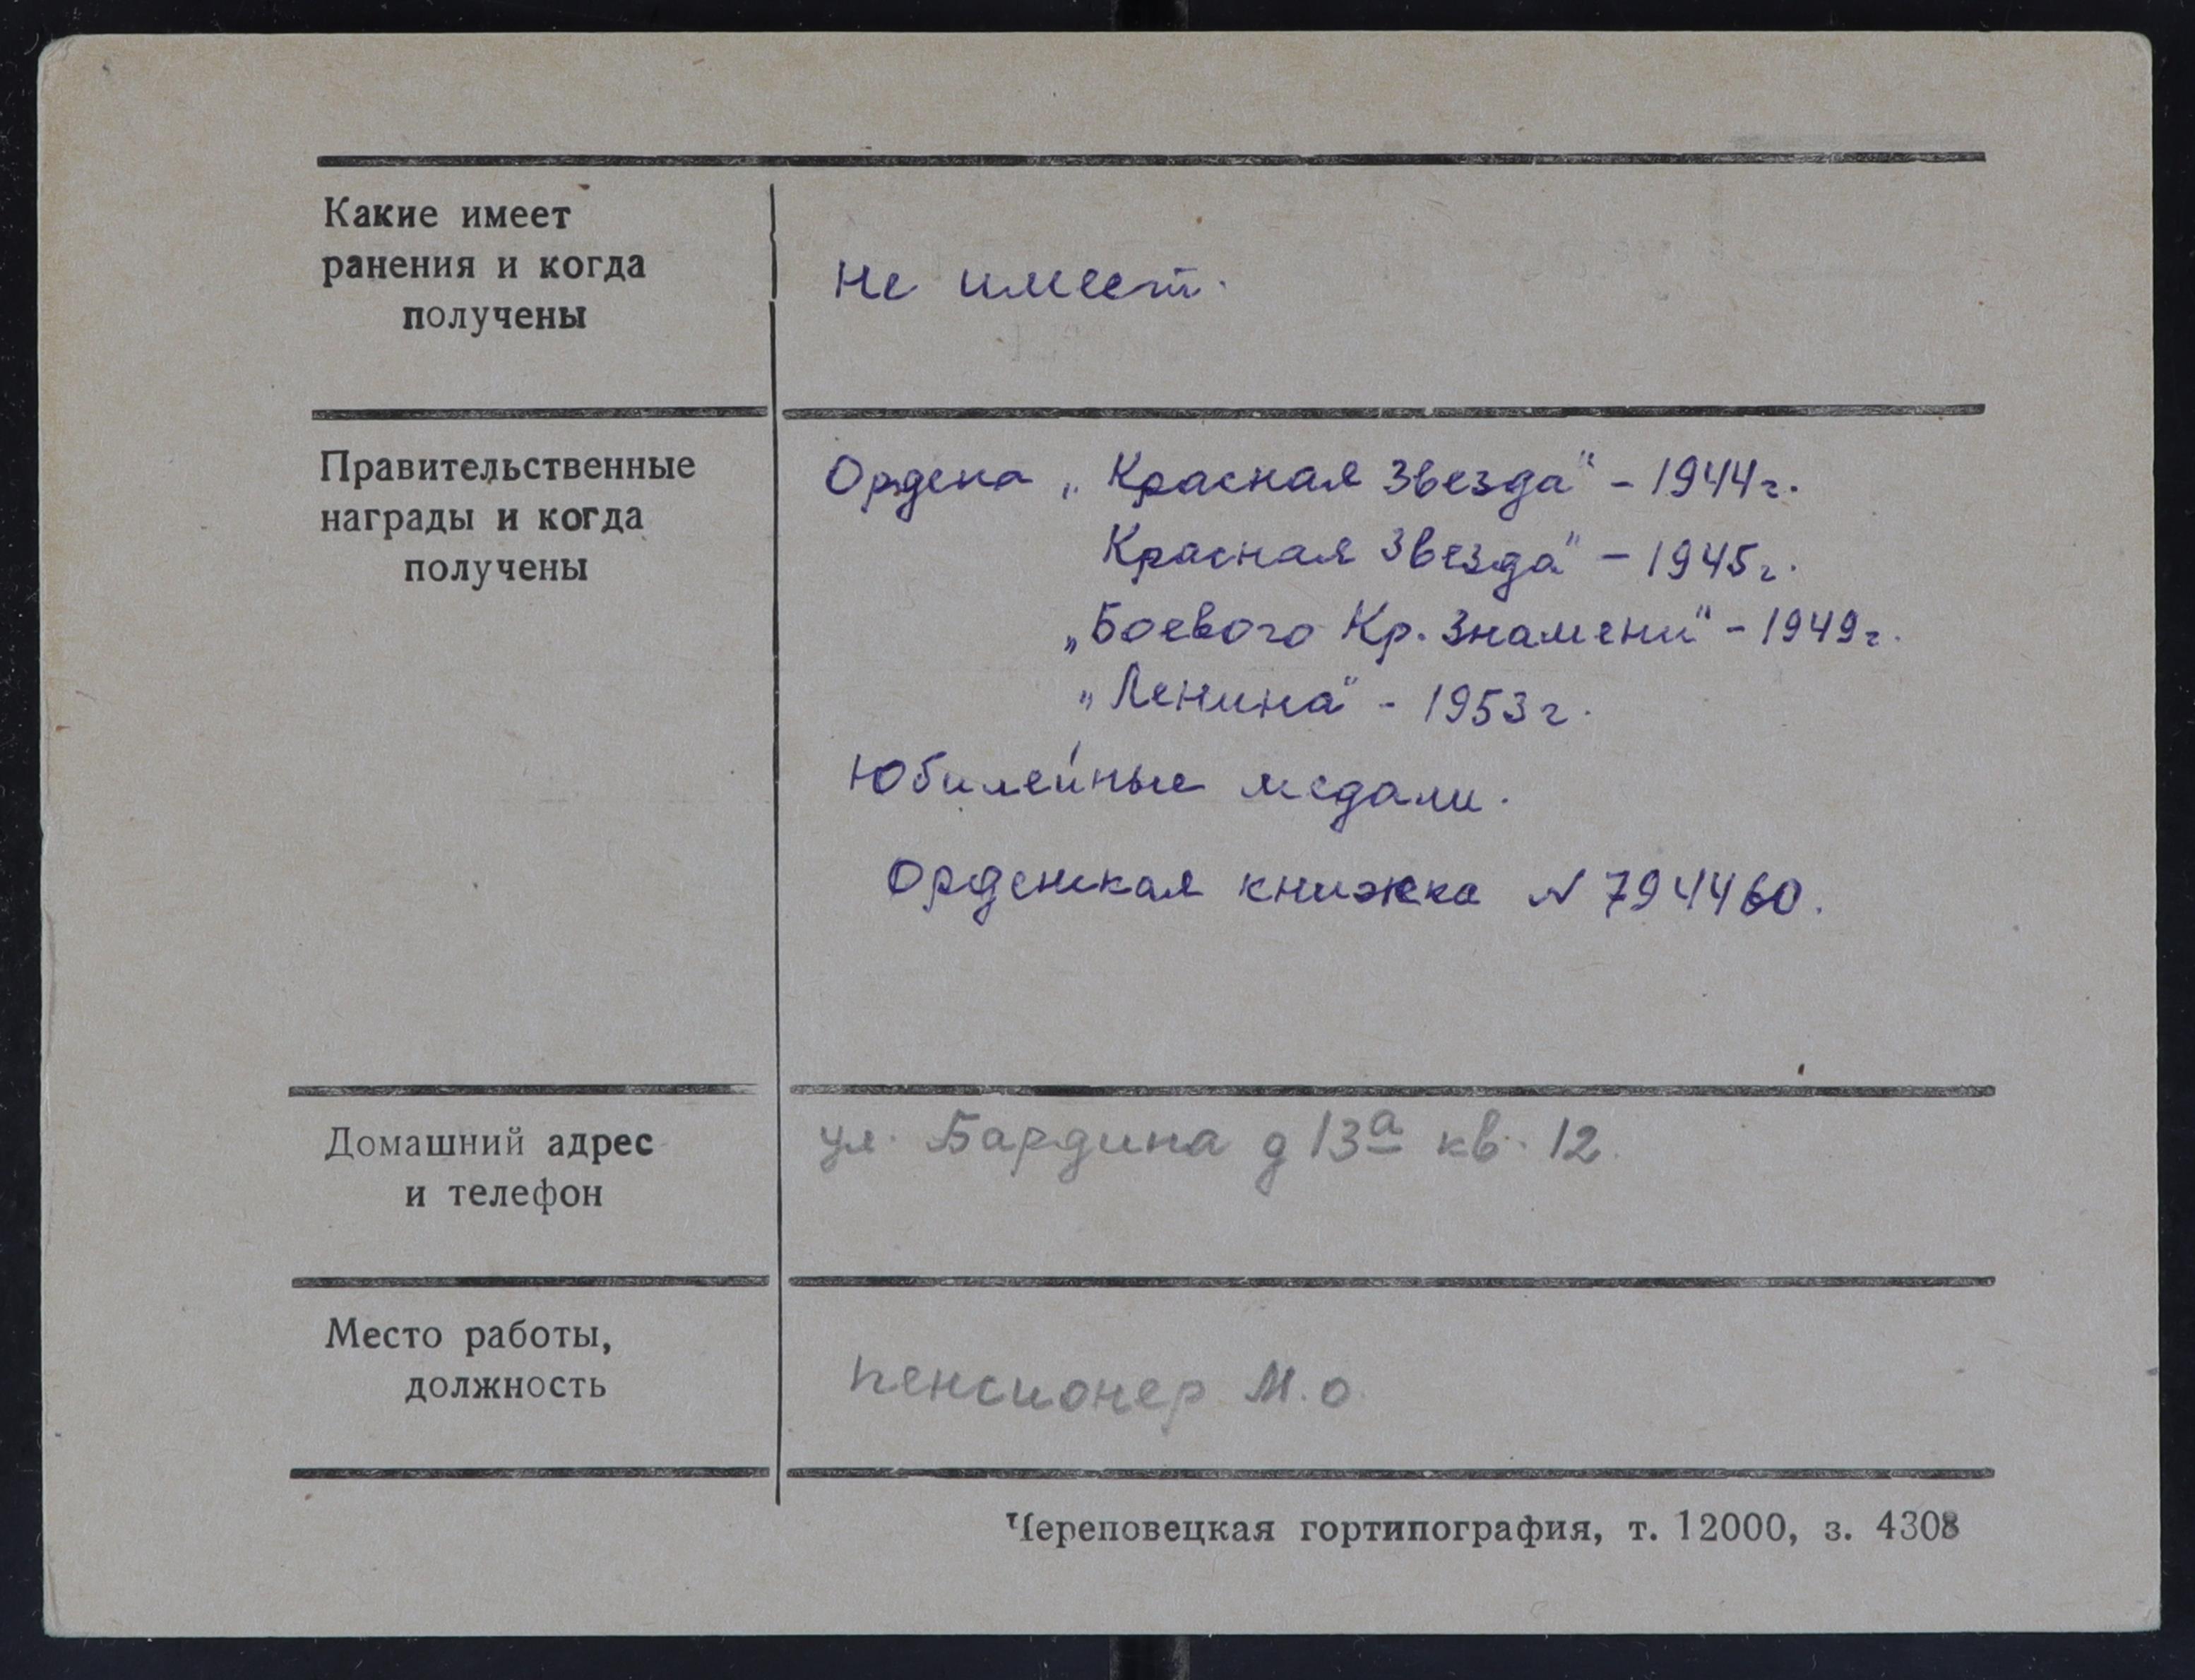 Какие имеет
ранения и когда
получены
не имеет.
Правительственные
награды и когда
получены
Ордена „Красная Звезда" - 1944г.
Красная Звезда" - 1945г.
„Боевого Кр. Знамени" - 1949г.
„Ленина" - 1953г.
Юбилейные медали.
Орденская книжка N 794460.
Домашний адрес
и телефон
ул. Бардина д 13а кв. 12.
Место работы,
должность
пенсионер М.О.
Череповецкая гортипография, т. 12000, з. 4308